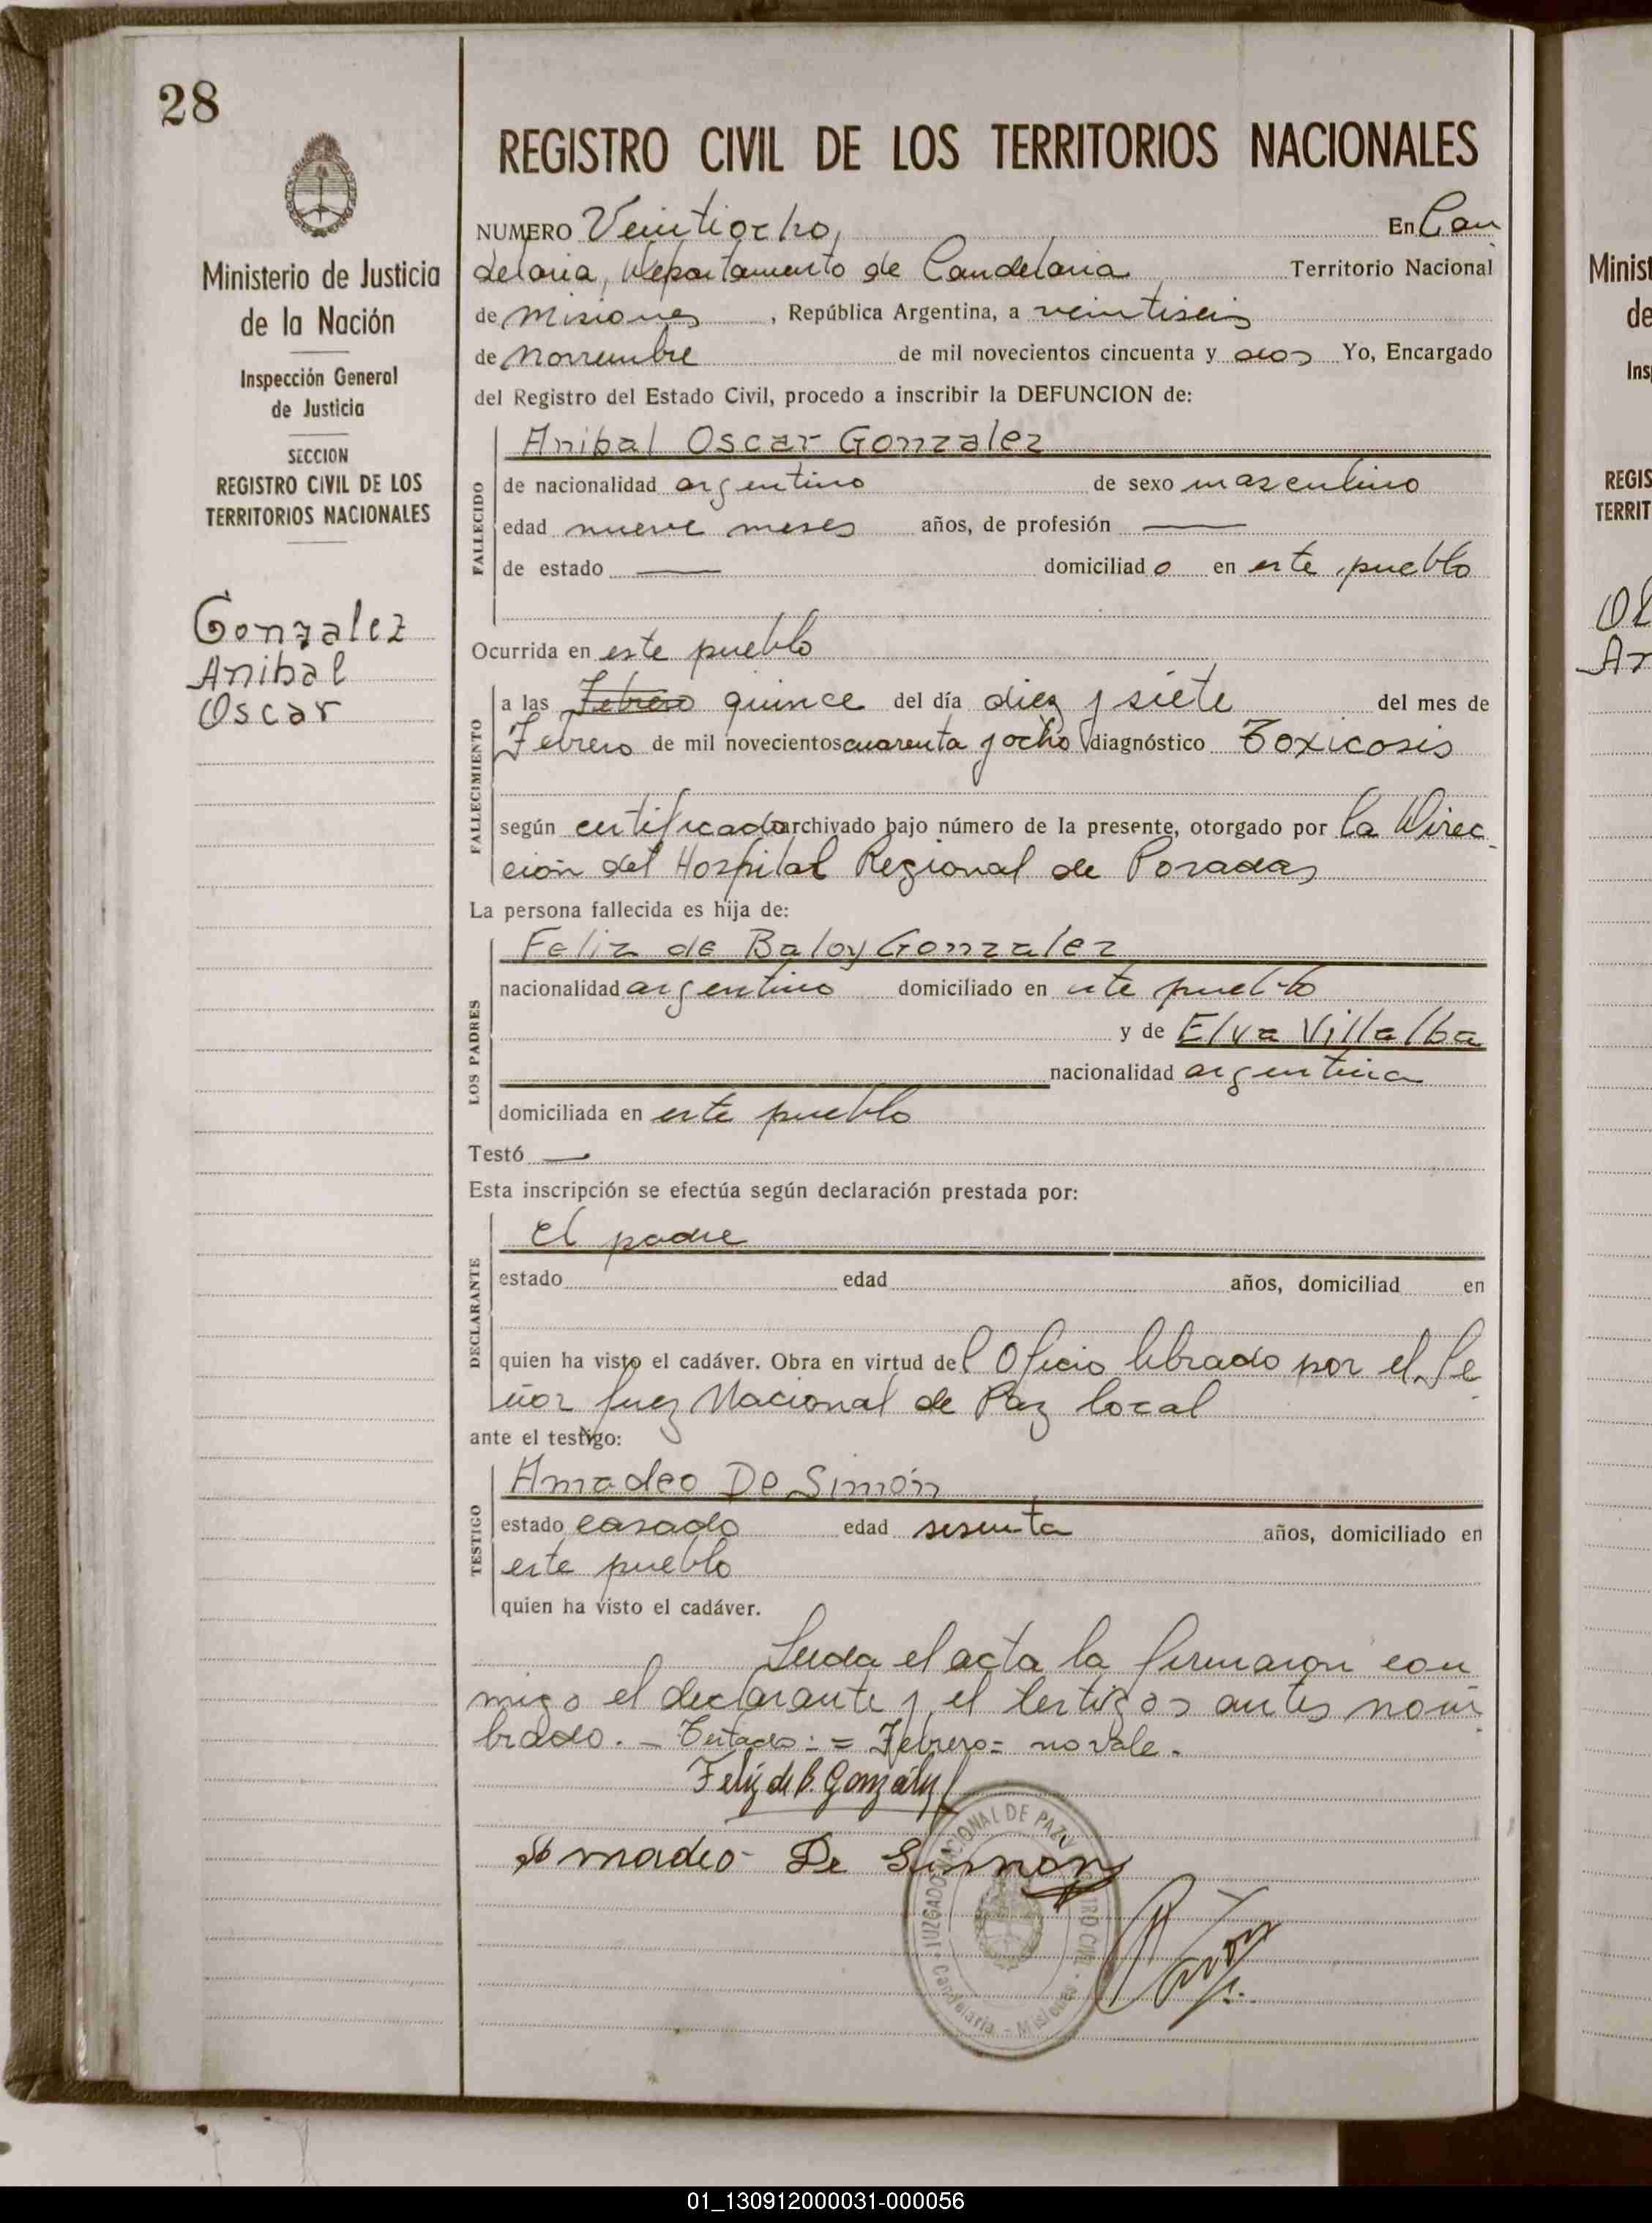 28
Ministerio de Justicia
de la Nación
Inspección General
de Justicia
SECCION
REGISTRO CIVIL DE LOS
TERRITORIOS NACIONALES
Gonzalez
Anibal
Oscar
REGISTRO CIVIL DE LOS TERRITORIOS NACIONALES
NUMERO Veintiocho, En Can
delaria, Departamento de Candelaria Territorio Nacional
de Misiones, República Argentina, a veintiseis
de Noviembre de mil novecientos cincuenta y dos Yo, Encargado
del Registro del Estado Civil, procedo a inscribir la DEFUNCION de:
Anibal Oscar Gonzalez
FALLECIDO
de nacionalidad argentino de sexo masculino
edad nueve meses años, de profesión —
de estado — domiciliado en este pueblo
Ocurrida en este pueblo
FALLECIMIENTO
a las Febrero quince del día diez y siete del mes de
Febrero de mil novecientos cuarenta y ocho diagnóstico Toxicosis
según certificado archivado bajo número de la presente, otorgado por la Direc
ción del Hospital Regional de Posadas
La persona fallecida es hija de:
LOS PADRES
Feliz de Baloy Gonzalez
nacionalidad argentino domiciliado en este pueblo
y de Elva Villalba
nacionalidad argentina
domiciliada en este pueblo
Testó —
Esta inscripción se efectúa según declaración prestada por:
DECLARANTE
el padre
estado edad años, domiciliad en
quien ha visto el cadáver. Obra en virtud del Oficio librado por el Se
ñor Juez Nacional de Paz local
ante el testigo:
TESTIGO
Amadeo De Simón
estado casado edad sesenta años, domiciliado en
este pueblo
quien ha visto el cadáver.
Leida el acta la firmaron con
migo el declarante y el testigos antes nom
brado. - Testado: = Febrero = no vale.
Feliz de B. Gonzalez
Amadeo De Simon
JUZGADO NACIONAL DE PAZ Y
Candelaria - Misiones
Minist
de
Ins
REGIS
TERRIT
01_130912000031-000056